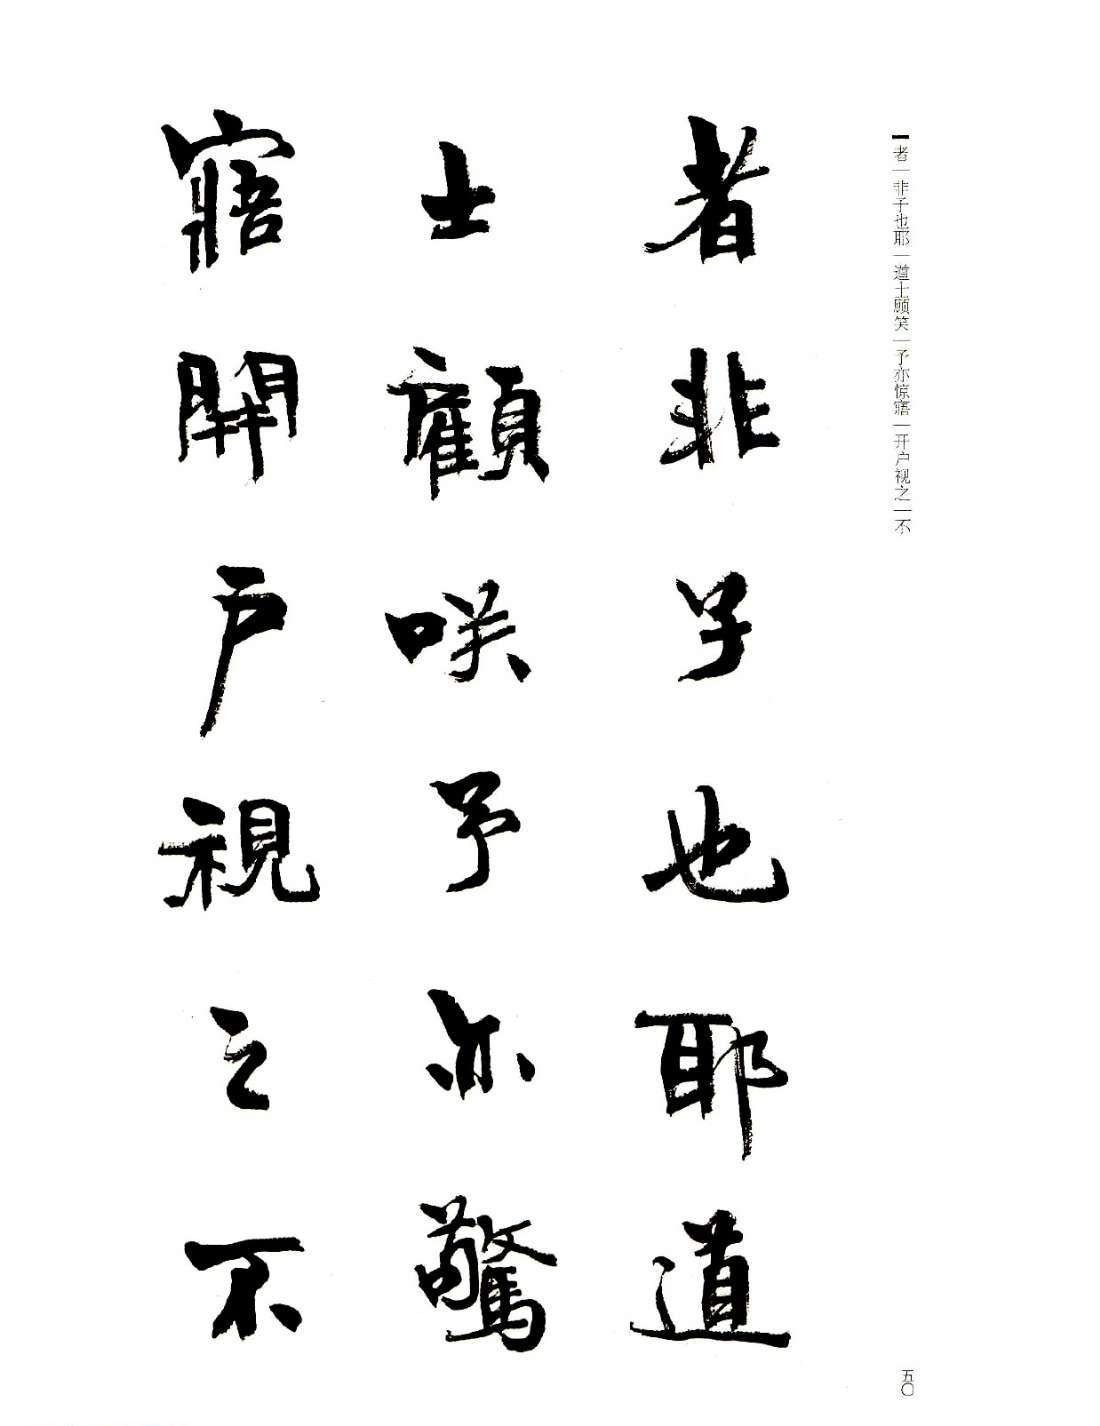 者｜非子也耶｜道士顾笑｜予亦惊寤｜开户视之｜不
者非子也耶道
士顧咲予亦驚
寤開戶視之不
五〇